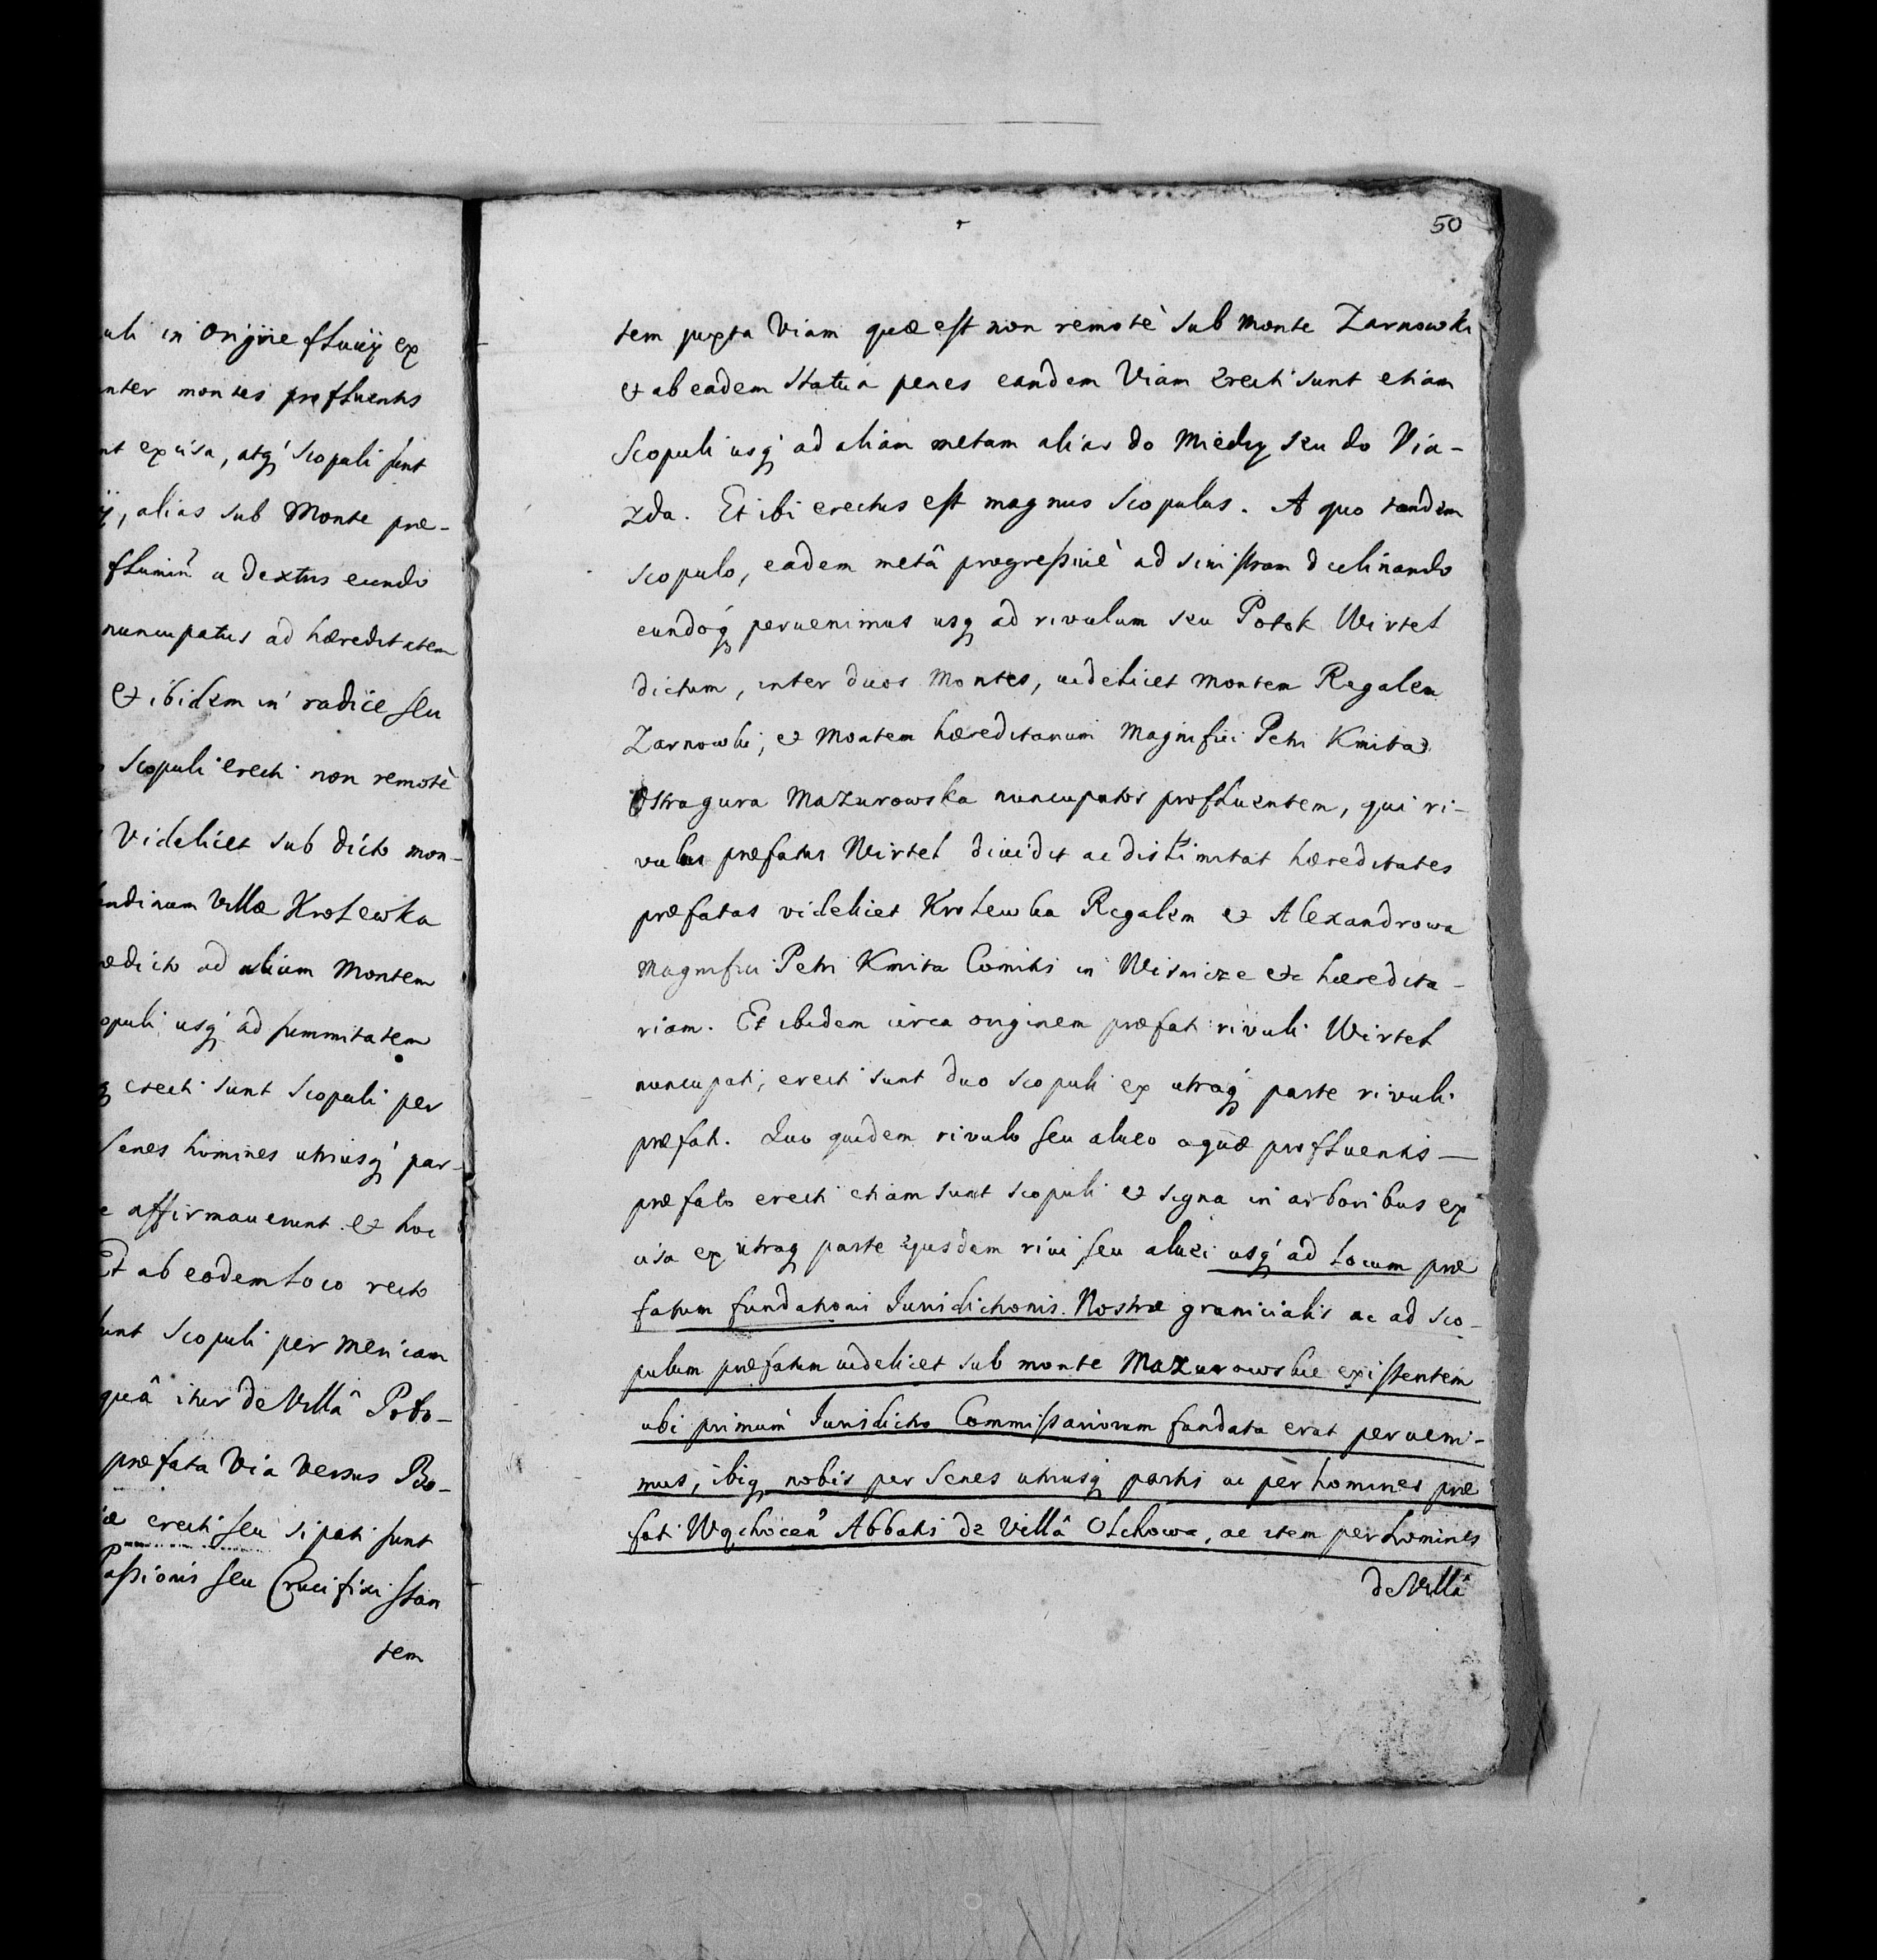 uli in origine fluuij ex
nter montes profluentis
nt excisa, atq́ scopuli sunt
ij, alias sub Monte præ-
flumin̄ a dextris eundo
nuncupatus ad hæreditatem
& ibidem in radice seu
scopuli erecti non remotè
Videlicet sub dicto mon-
undinum Villæ Krolewka
ædicto ad alium Montem
opuli usq́ ad summitatem
q erecti sunt scopuli per
senes homines utriusq́ par-
e affirmauerunt & hoc
Et ab eodem loco recto
sunt scopuli per mericam
quâ iter de Villâ Pobo-
præfata Via Versus Bo-
iæ erecti seu sipati sunt
Passionis seu Crucifixi stan
tem
50
tem juxta Viam quæ est non remotè sub monte Zarnowki
& ab eadem statua penes eandem Viam erecti sunt etiam
Scopuli usq́ ad aliam metam alias do Miedzy seu do Via-
zda. Et ibi erectus est magnus scopulus. A quo tandem
scopulo, eadem metâ progressiuè ad sinistram declinando
eundoq́ peruenimus usq́ ad rivulum seu Potok Wirtel
dictum, inter duos Montes, uidelicet montem Regalem
Zarnowki, & Montem hæreditarium Magnifici Petri Kmita
Ostragura Mazurowska nuncupatos profluentem, qui ri-
vulus præfatus Wirtel diuidit ac distimitat hæreditates
præfatas videlicet Krolewka Regalem & Alexandrowa
Magnifici Petri Kmita Comitis in Wisnicze &c hæredita-
riam. Et ibidem circa originem præfati rivuli Wirtel
nuncupati, erecti sunt duo scopuli ex utraq́ parte rivuli
præfati. Quo quidem rivulo seu alueo aquæ profluentis —
præfato erecti etiam sunt scopuli & signa in arboribus ex
cisa ex utraq parte ejusdem riui seu aluei usq́ ad locum præ
fatum fundationis Iurisdictionis Nostræ granicialis ac ad sco-
pulum præfatum uidelicet sub monte Mazurowskie existentem
ubi primum Iurisdictio Commissariorum fundata erat perueni-
mus, ibiq nobis per senes utriusq́ partis ac per homines præ
fati Wąchocen̄ Abbatis de Villâ Olchowa, ac item per homines
de Villâ